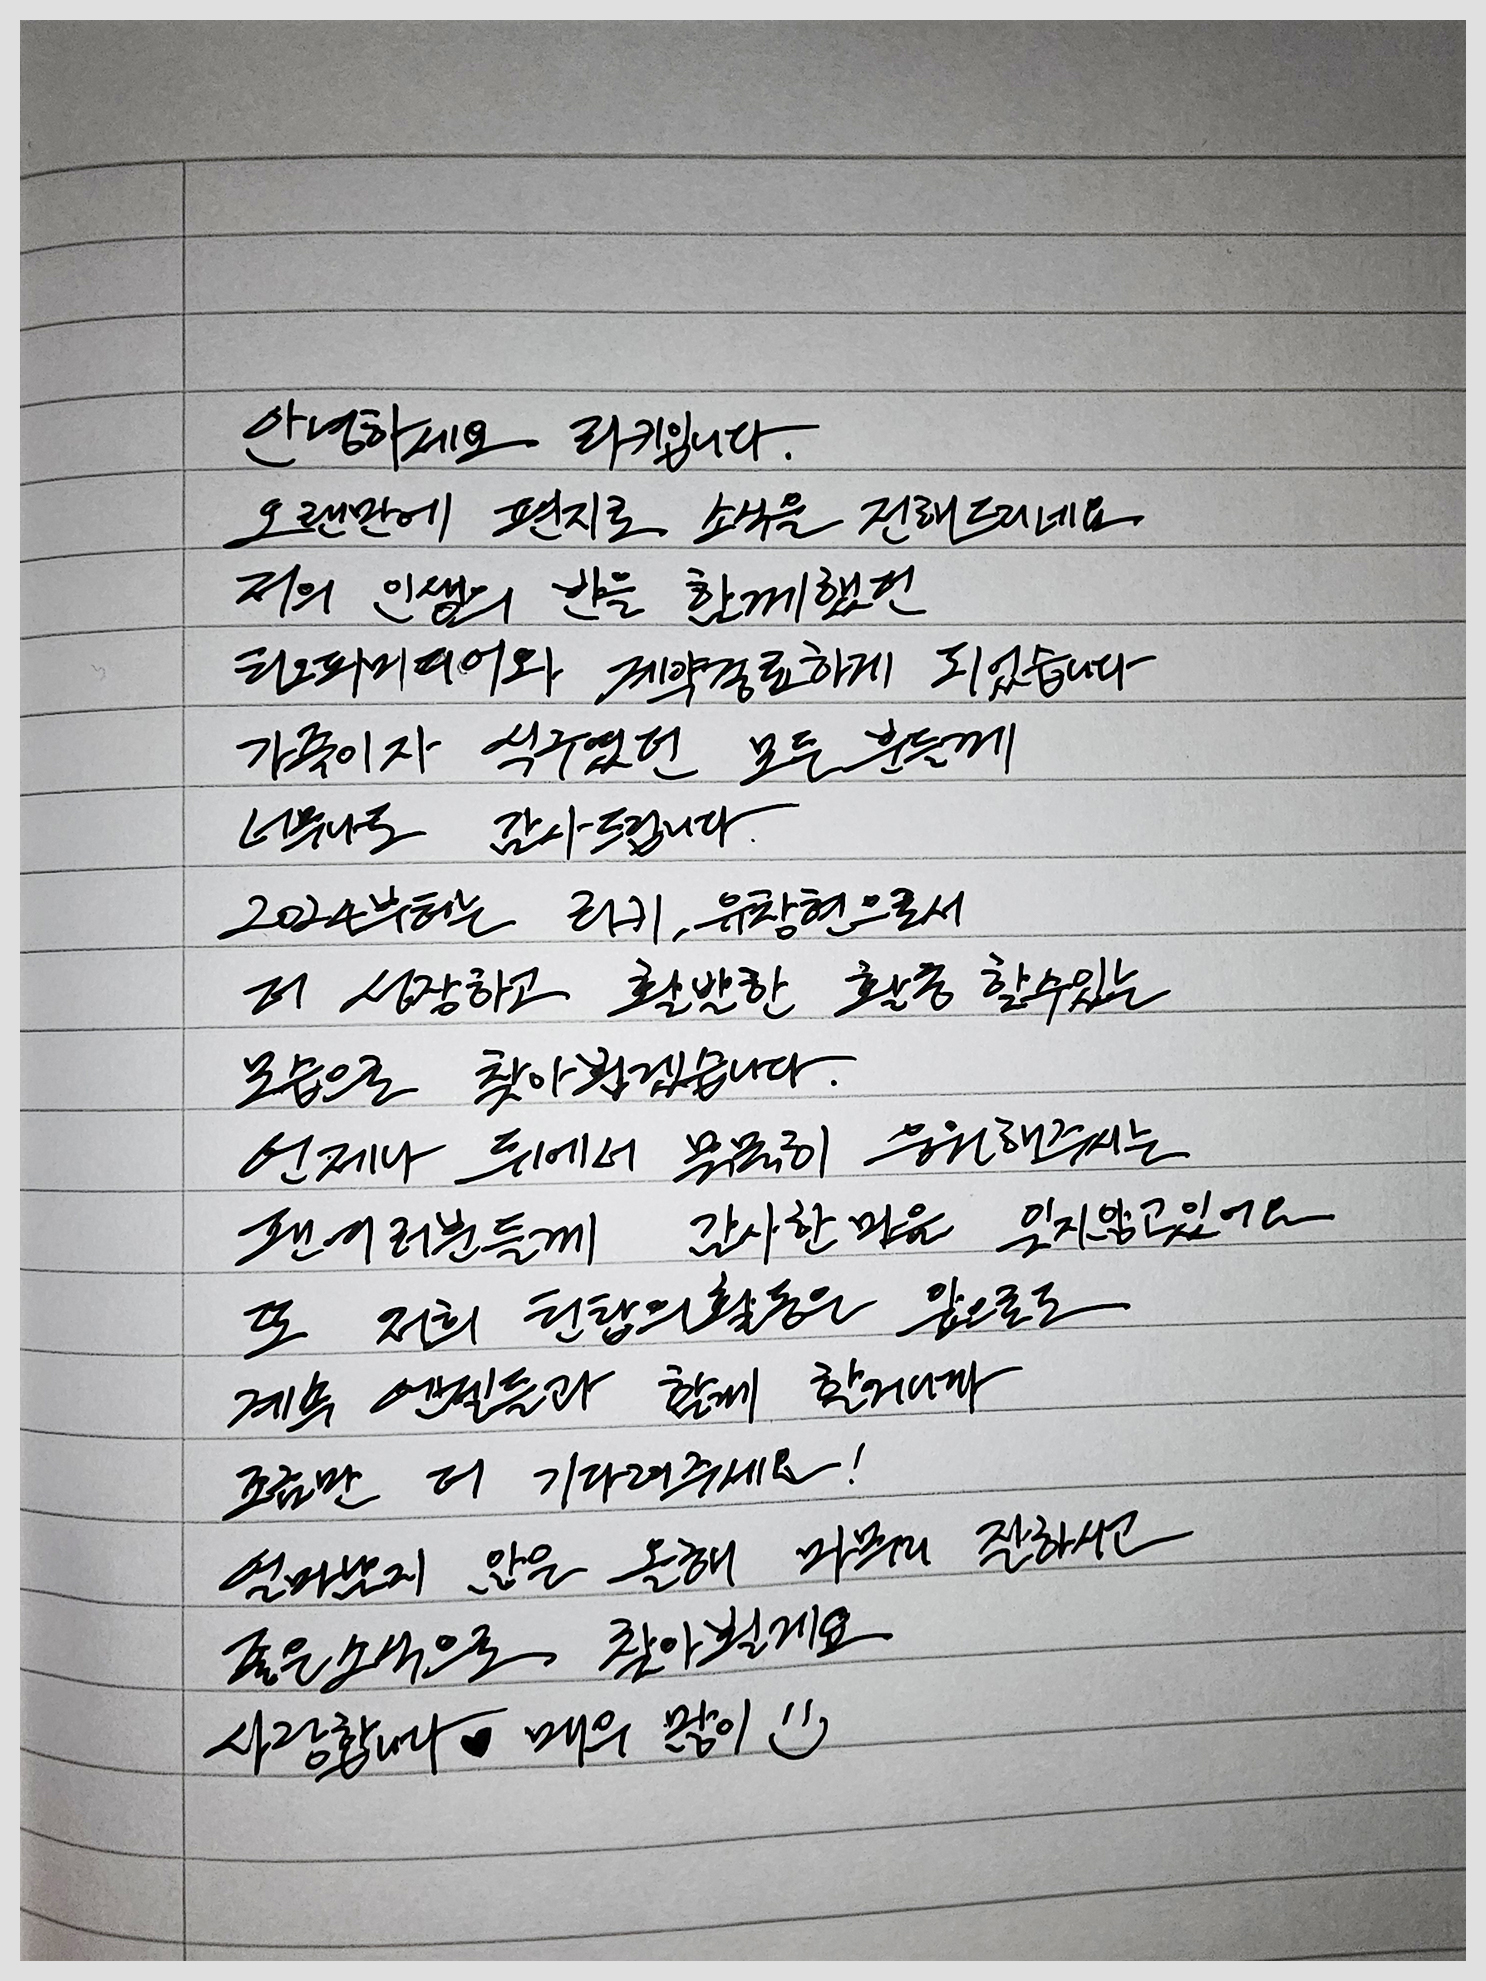 안녕하세요 라키입니다.
오랜만에 편지로 소식을 전해드리네요
저의 인생의 반을 함께했던
티오피미디어와 계약종료하게 되었습니다
가족이자 식구였던 모든 분들께
너무나도 감사드립니다.
2024부터는 라키, 유창현으로서
더 성장하고 활발한 활동 할수있는
모습으로 찾아뵙겠습니다.
언제나 뒤에서 묵묵히 응원해주시는
팬여러분들께 감사한 마음 잊지않고있어요
또 저희 틴탑의 활동은 앞으로도
계속 엔젤들과 함께 할거니까
조금만 더 기다려주세요!
얼마남지 않은 올해 마무리 잘하시고
좋은소식으로 찾아뵐게요
사랑합니다♥ 매우 많이 :)